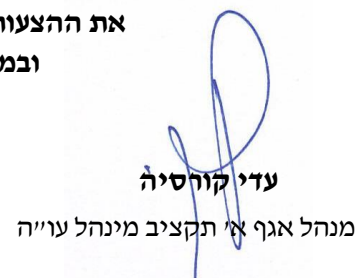 את ההצעות
ובמ
עדי קורסיה
מנהל אגף א׳ תקציב מינהל עו״ה